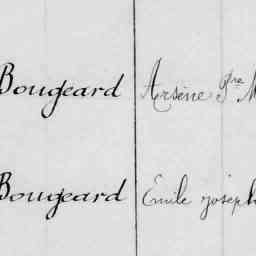 Bougeard Arsène Pre M
Bougeard Emile joseph